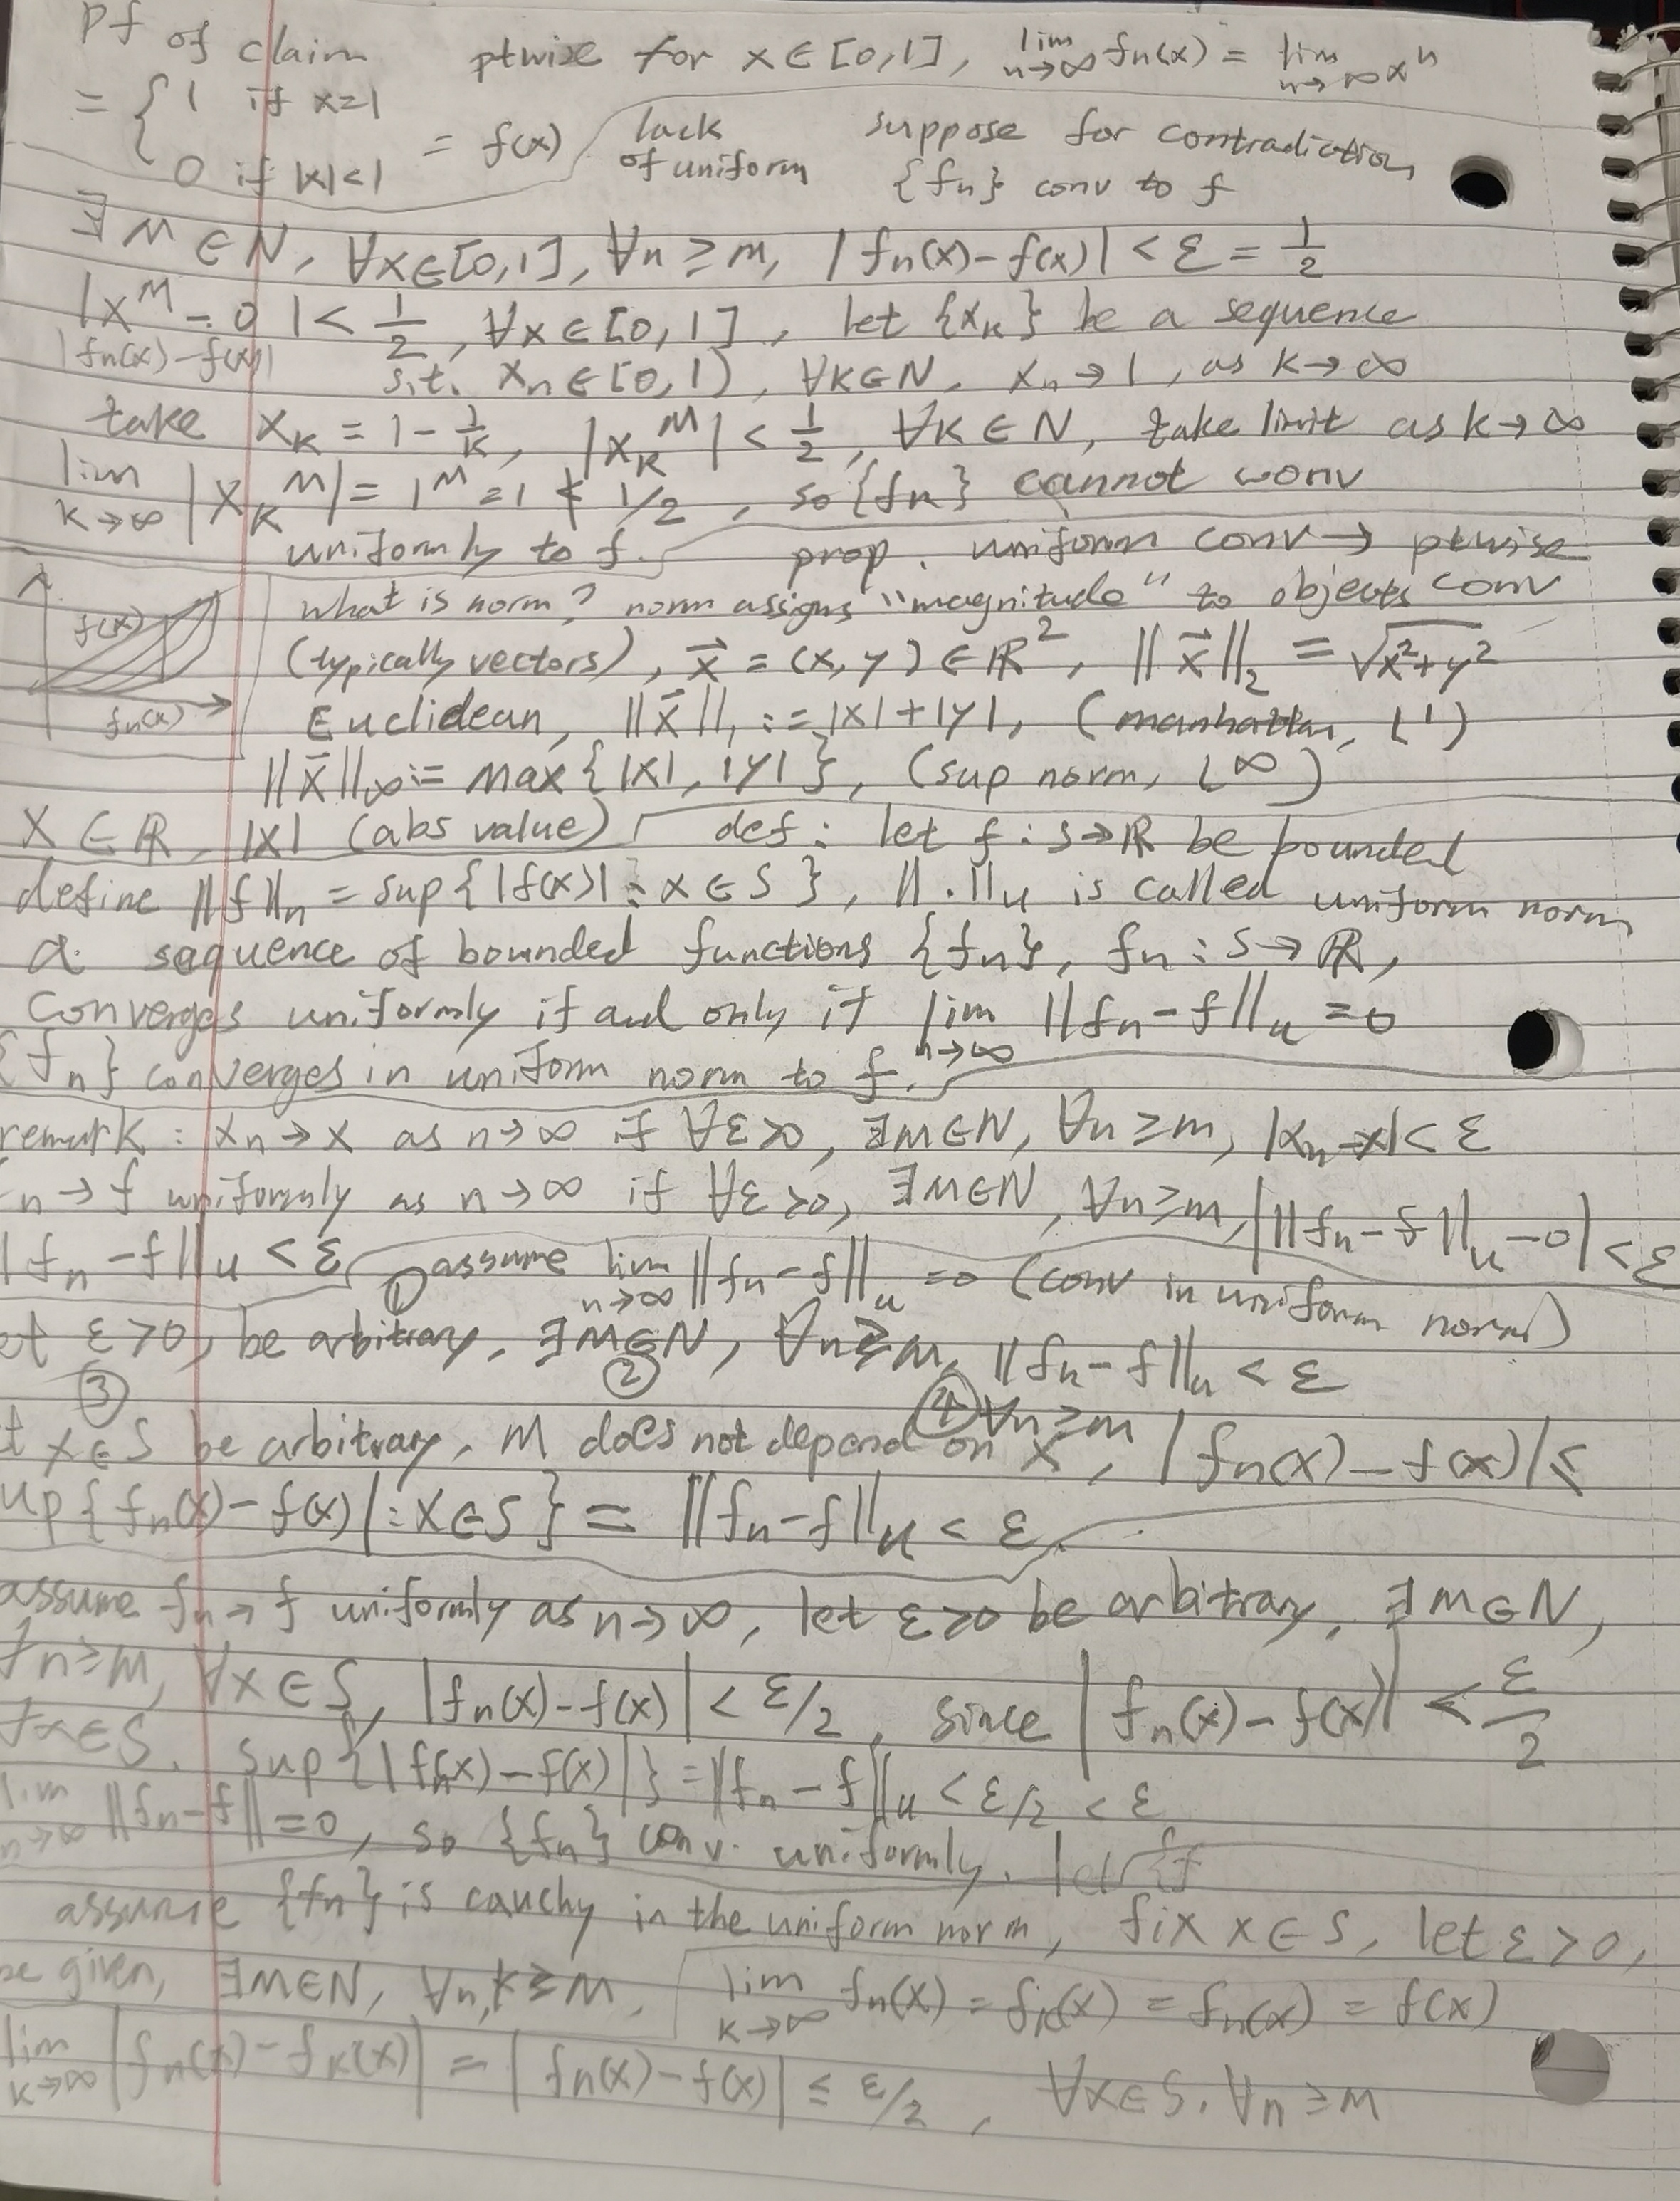 Pf of claim ptwise for x∈[0,1], lim n→∞ fn(x) = lim n→∞ x^n
= { 1 if x=1
0 if |x|<1 = f(x) lack of uniform suppose for contradiction {fn} conv to f
∃M∈N, ∀x∈[0,1], ∀n≥m, |fn(x)-f(x)| < ε = 1/2
|x^M - 0| < 1/2, ∀x∈[0,1], let {xk} be a sequence
|fn(x)-f(x)| s.t. xn∈[0,1), ∀k∈N, xn→1, as k→∞
take xk = 1-1/k, |xk^M| < 1/2, ∀k∈N, take limit as k→∞
lim k→∞ |xk^M| = 1^M = 1 ≮ 1/2, so {fn} cannot conv
uniformly to f. prop. uniform conv → ptwise
f(x) what is norm? norm assigns "magnitude" to objects conv
(typically vectors), x⃗ = (x,y) ∈ ℝ^2, ||x⃗||_2 = √x^2+y^2
fn(x) Euclidean, ||x⃗||_1 := |x|+|y|, (manhattan, L^1)
||x⃗||_∞ := max{|x|,|y|}, (sup norm, L^∞)
x∈ℝ, |x| (abs value) def: let f:s→ℝ be bounded
define ||f||n = sup{|f(x)|: x∈S}, ||·||u is called uniform norm
a sequence of bounded functions {fn}, fn:S→ℝ,
converges uniformly if and only if lim n→∞ ||fn-f||u = 0
{fn} converges in uniform norm to f.
remark: xn→x as n→∞ if ∀ε>0, ∃M∈N, ∀n≥m, |xn-x|<ε
n→f uniformly as n→∞ if ∀ε>0, ∃M∈N, ∀n≥m, | ||fn-f||u-0|<ε
|fn-f||u<ε ① assume lim n→∞ ||fn-f||u=0 (conv in uniform norm)
et ε>0, be arbitrary, ∃M∈N, ∀n≥m, ||fn-f||u<ε
③ ② ④ ∀n≥m
t x∈S be arbitrary, M does not depend on x, |fn(x)-f(x)|≤
up{fn(x)-f(x)|:x∈S} = ||fn-f||u < ε
assume fn→f uniformly as n→∞, let ε>0 be arbitrary, ∃M∈N,
∀n≥m, ∀x∈S, |fn(x)-f(x)| < ε/2, since |fn(x)-f(x)| < ε/2
∀x∈S. sup{|fn(x)-f(x)|} = ||fn-f||u < ε/2 < ε
lim n→∞ ||fn-f||=0, so {fn} conv. uniformly. let {f
assume {fn} is cauchy in the uniform norm, fix x∈S, let ε>0,
be given, ∃M∈N, ∀n,k≥M, lim k→∞ fn(x) = fk(x) = fn(x) = f(x)
lim k→∞ |fn(x)-fk(x)| = |fn(x)-f(x)| ≤ ε/2, ∀x∈S, ∀n≥M